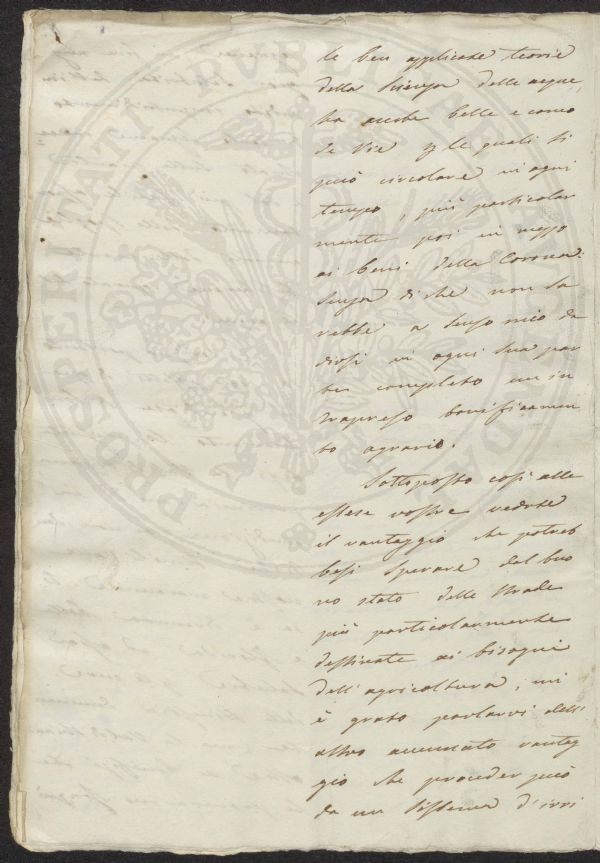 le ben applicate teorie
della Scienza delle acque,
ha anche belle e como
de Vie p le quali si
può circolare in ogni
tempo, più particolar
mente poi in mezzo
ai beni della Corona:
Senza di che non sa
rebbe a senso mio da
dirsi in ogni sua par
te completo un in
trapreso bonificamen
to agrario.
Sottoposto così alle
estese vostre vedute
il vantaggio che potreb
besi sperare dal buo
no stato delle strade
più particolarmente
destinate ai bisogni
dell'agricoltura, mi
è grato parlarvi dell'
altro accennato vantag
gio che proceder può
da un sistema d'irri
PROSPERITATI PUBLICAE AUGENDAE